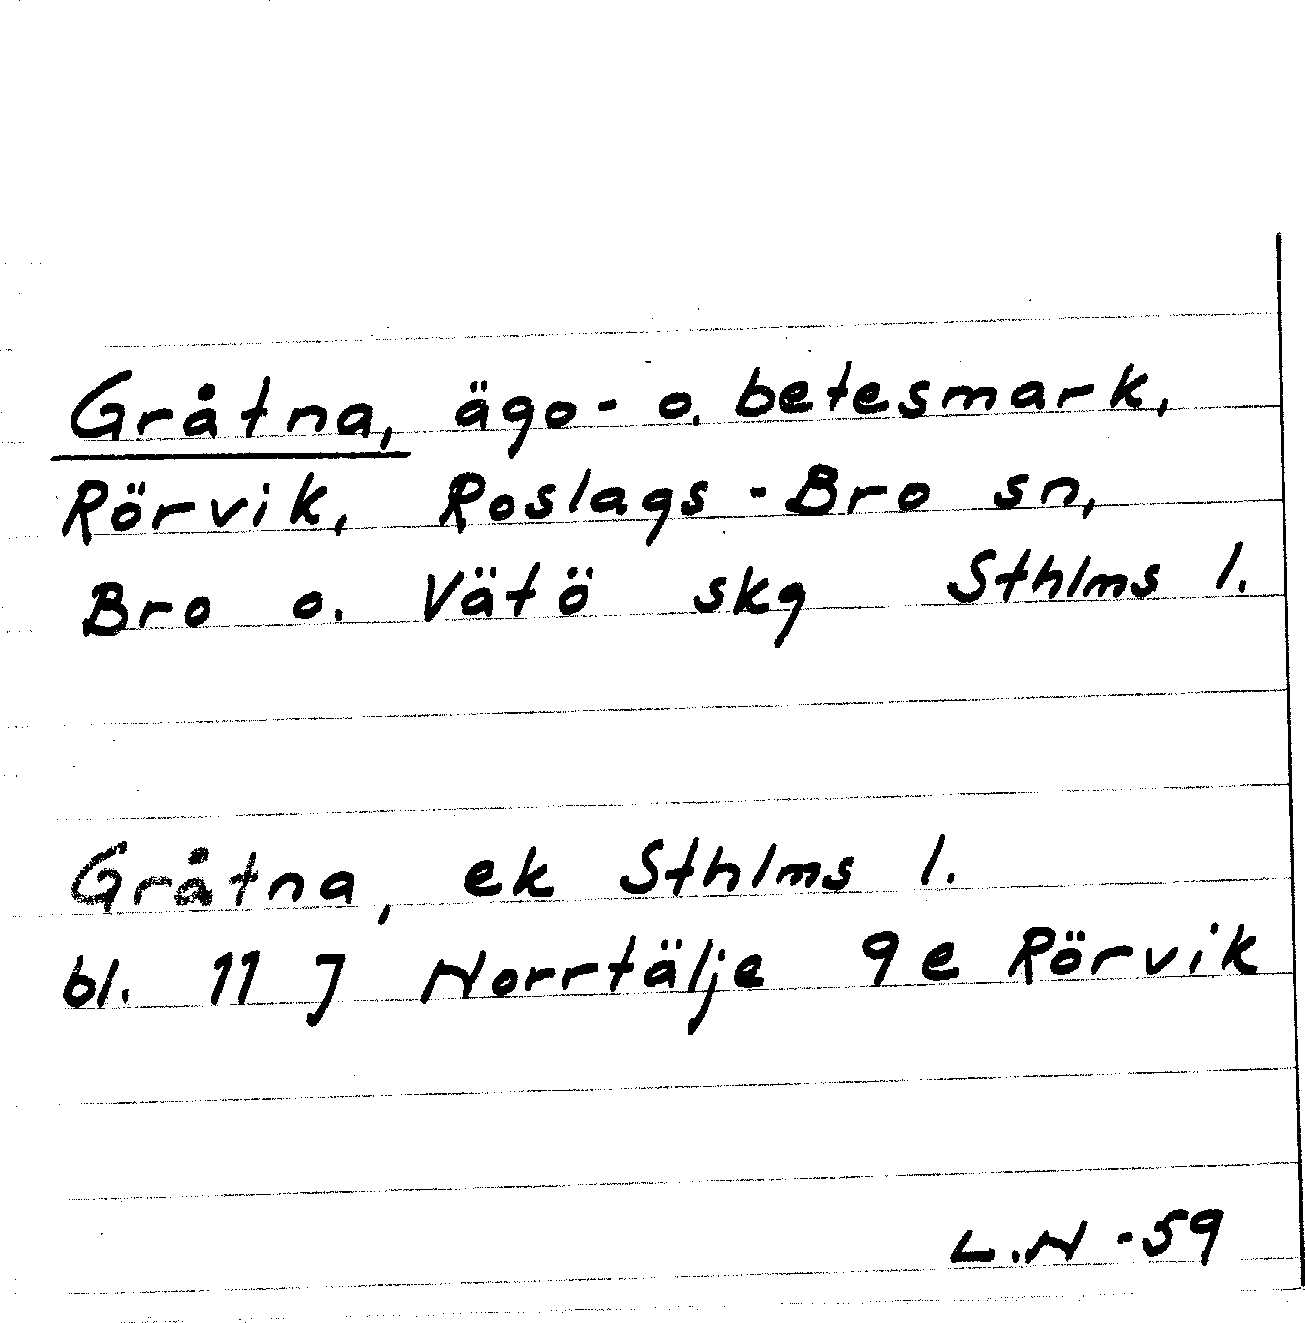 Gråtna, ägo- o. betesmark,
Rörvik, Roslags-Bro sn,
Bro o. Vätö skg Sthlms l.
Gråtna, ek Sthlms l.
bl. 11 J Norrtälje 9e Rörvik
L.N -59